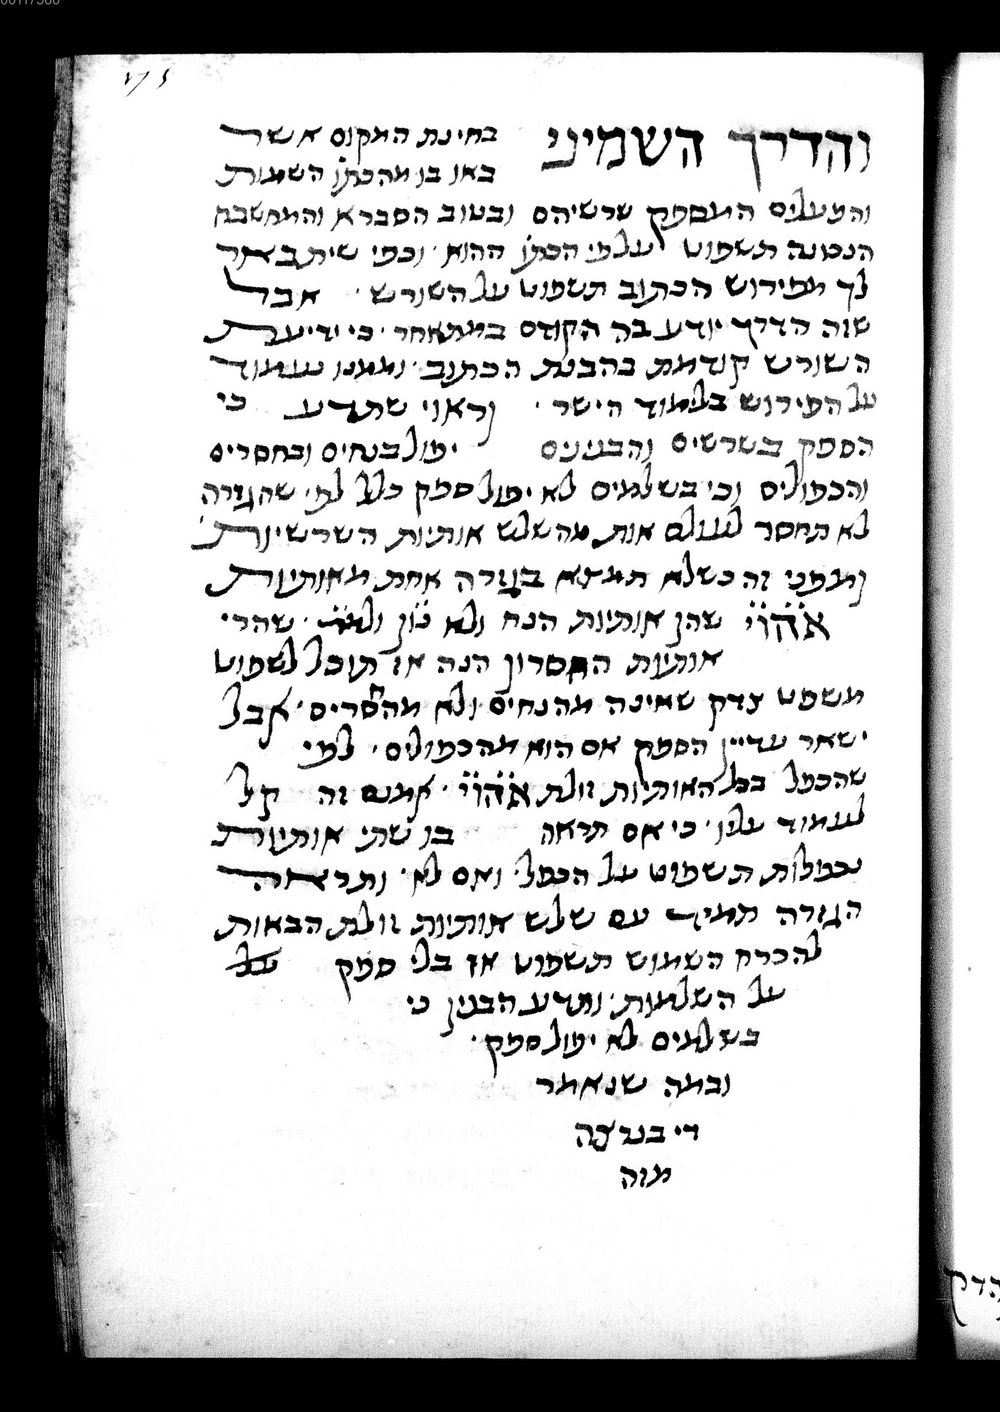 175
והדרך השמיני בחינת המקום אשר
באו בו מהכתו השמות
והפעלים המסופק שרשיהם ובטוב הסברא והמחשבה
הנכונה תשפוט על פי הכתו ההוא וכפי שיתבאר
לך מפירוש הכתוב תשפוט על השורש אבל
שזה הדרך יודע בה הקודם במתאחר כי ידיעת
השורש קודמת בהבנת הכתוב וממנו נעמוד
על הפירוש בלימוד הישר וראוי שתדע כי
הספק בשרשים והבנינים יפול בנחים ובחסרים
והכפולים וכי בשלמים לא יפול ספק כלל לפי שהגזרה
לא תחסר לעולם אות מהשלש אותיות השרשיות
ומפני זה כשלא תמצא בגזרה אחת מאותיות
אהוי שהן אותיות הנח ולא נון ולא שהרי
אותיות החסרון הנה אז תוכל לשפוט
משפט צדק שאינה מהנחים ולא מהחסרים אבל
ישאר עדיין הספק אם הוא מהכפולים לפי
שהכפל בכל האותיות זולת אהוי אמנם זה קל
לעמוד עליו כי אם תראה בו שתי אותיות
נכפלות תשפוט על הכפל ואם לא ותראה
הגזרה תמיד עם שלש אותיות זולת הבאות
להכרח השמוש תשפוט אז בלי ספק על
על השלמות ותדע הבנין כי
בשלמים לא יפול ספק
ובמה שנאמר
די בנרצה
מזה